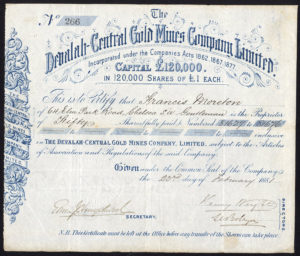 No 266
The
Devalah-Central Gold Mines Company Limited
Incorporated under the Companies Acts 1862, 1867, 1877.
CAPITAL £120,000.
IN 120,000 SHARES OF £1 EACH.
This is to Certify that Francis Moreton
of 64 Elm Park Road, Chelsea S.W. Gentleman is the Proprietor
of Fifty Shares fully paid Numbered
inclusive
in THE DEVALAH-CENTRAL GOLD MINES COMPANY, LIMITED, subject to the Articles
of Association and Regulations of the said Company.
Given under the Common Seal of the Company
the 22nd day of February 1881
SECRETARY.
DIRECTORS
N.B. This Certificate must be left at the Office before any transfer of the Shares can take place.